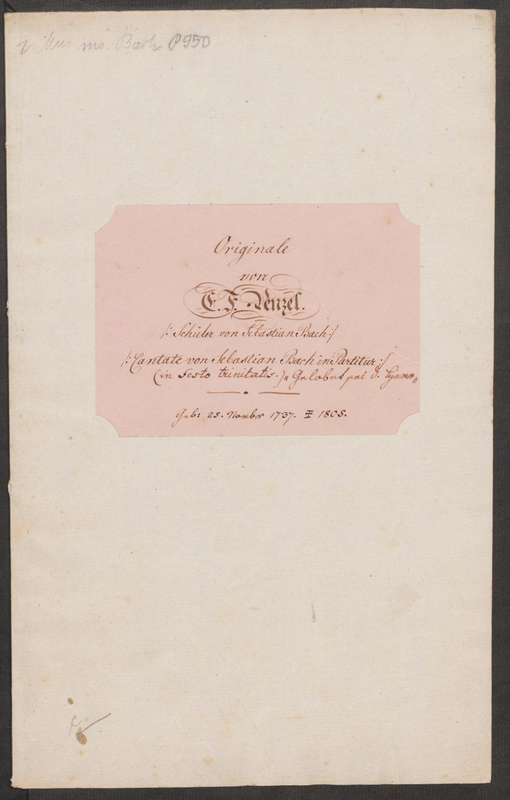 Mus. ms. Bach P 950
Originale
von
C. F. Penzel.
/: Schüler von Sebastian Bach :/
/: Cantate von Sebastian Bach in Partitur :/
(in Festo trinitatis.) Gelobet sei d.
Geb: 25. Novembr 1737. 1808.